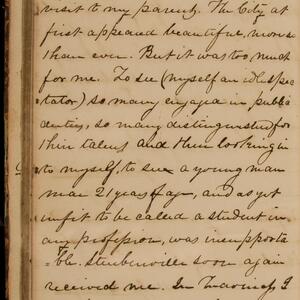 visit to my parents. The City at
first appeared beautiful, more so
than ever. But it was too much
for me. To see (myself an idle spec
tator) so many engaged in public
duties, so many distinguished for
their talens and then looking in
to myself, to see a young man
near 21 years of age, and as yet
unfit to be called a student in
any profession, was insupporta
=ble. Steubenville soon again
received me. In I